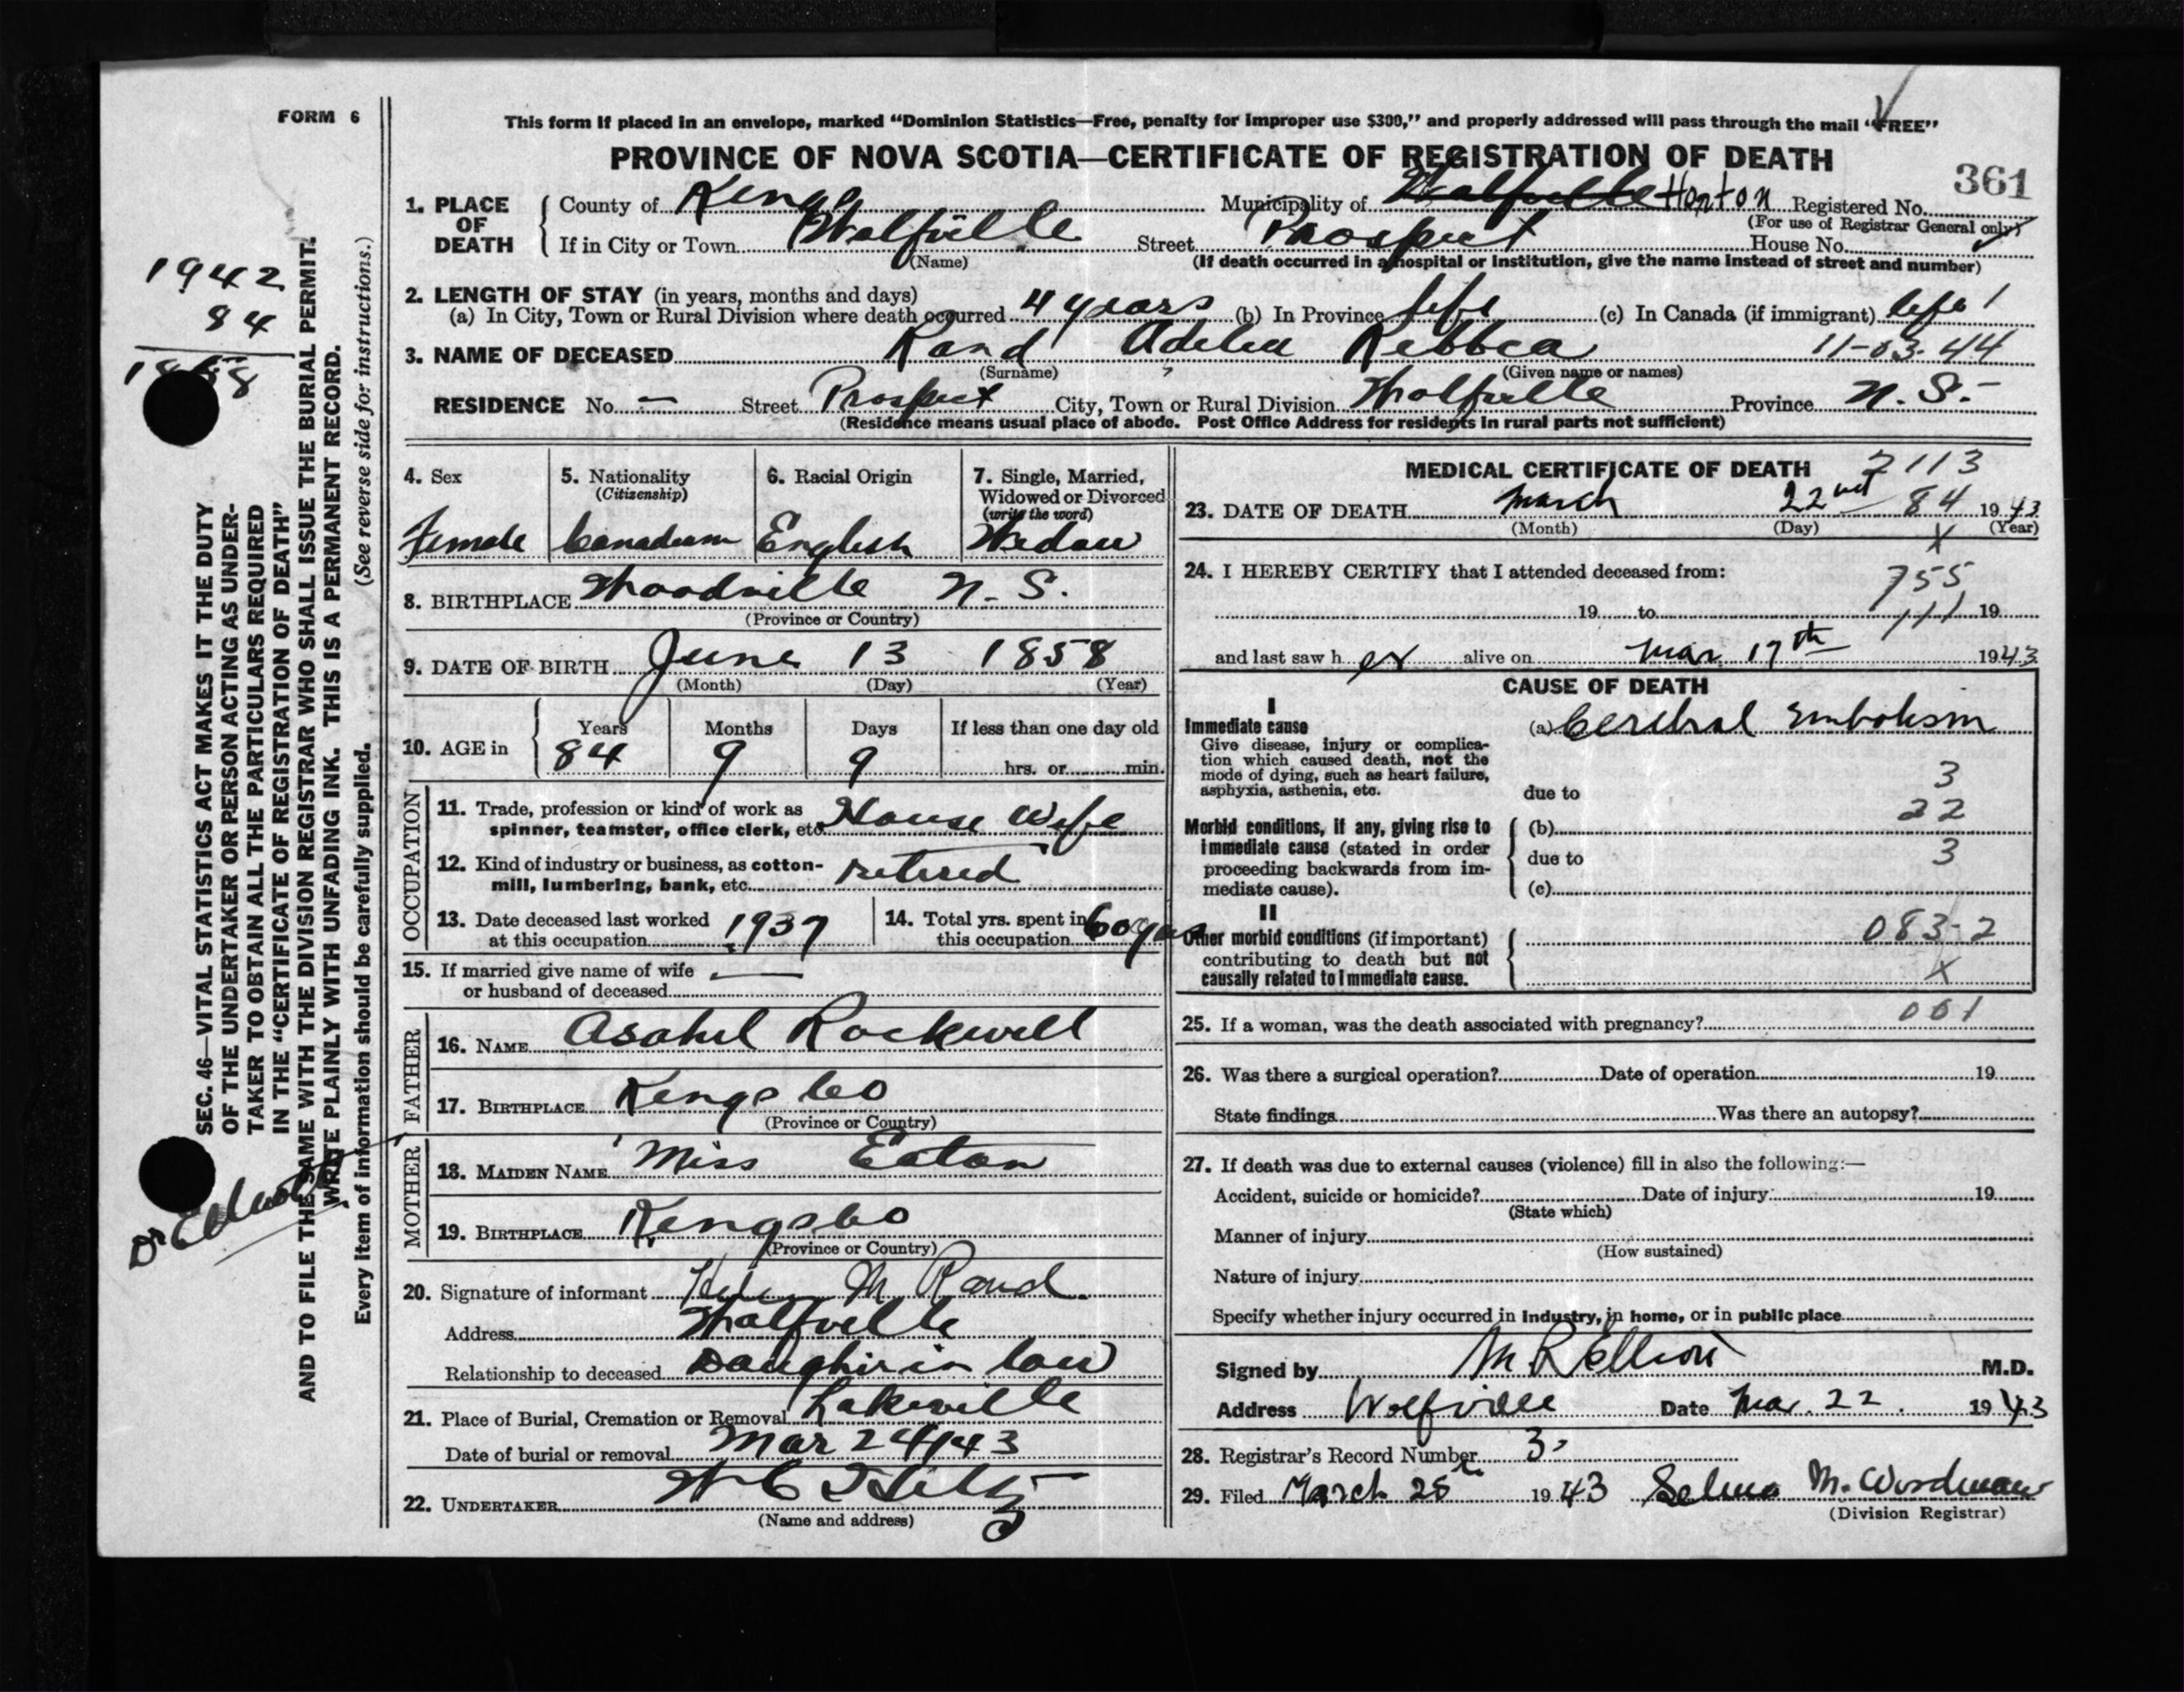 FORM 6
This form if placed in an envelope, marked “Dominion Statistics—Free, penalty for improper use $300,” and properly addressed will pass through the mail “FREE”
PROVINCE OF NOVA SCOTIA—CERTIFICATE OF REGISTRATION OF DEATH
361
1. PLACE OF DEATH
County of Kings Municipality of Wolfville Horton Registered No.
(For use of Registrar General only)
If in City or Town Wolfville Street Prospect House No.
(Name) (If death occurred in a hospital or institution, give the name instead of street and number)
2. LENGTH OF STAY (in years, months and days)
(a) In City, Town or Rural Division where death occurred 4 years (b) In Province life (c) In Canada (if immigrant) life
3. NAME OF DECEASED Rand Adelia Rebbca 11-03-44
(Surname) (Given name or names)
RESIDENCE No. — Street Prospect City, Town or Rural Division Wolfville Province N.S.
(Residence means usual place of abode. Post Office Address for residents in rural parts not sufficient)
4. Sex
Female
5. Nationality
(Citizenship)
Canadian
6. Racial Origin
English
7. Single, Married,
Widowed or Divorced
(write the word)
Widow
8. BIRTHPLACE Woodville N.S.
(Province or Country)
9. DATE OF BIRTH June 13 1858
(Month) (Day) (Year)
10. AGE in
Years Months Days If less than one day old
84 9 9 hrs. or min.
OCCUPATION
11. Trade, profession or kind of work as
spinner, teamster, office clerk, etc. House Wife
12. Kind of industry or business, as cotton-
mill, lumbering, bank, etc. retired
13. Date deceased last worked
at this occupation 1937
14. Total yrs. spent in
this occupation 60 years
15. If married give name of wife
or husband of deceased —
FATHER
16. NAME Asahel Rockwell
17. BIRTHPLACE Kings Co
(Province or Country)
MOTHER
18. MAIDEN NAME Miss Eaton
19. BIRTHPLACE Kings Co
(Province or Country)
20. Signature of informant M Rand.
Address Wolfville
Relationship to deceased Daughter in law
21. Place of Burial, Cremation or Removal Lakeville
Date of burial or removal Mar 24/43
22. UNDERTAKER
(Name and address)
MEDICAL CERTIFICATE OF DEATH 7113
23. DATE OF DEATH March 22nd 84 1943
(Month) (Day) (Year)
X
24. I HEREBY CERTIFY that I attended deceased from:
755
19 to 111 19
and last saw her alive on Mar 17th 1943
CAUSE OF DEATH
I
Immediate cause
Give disease, injury or complica-
tion which caused death, not the
mode of dying, such as heart failure,
asphyxia, asthenia, etc.
(a) Cerebral Embolism
3
due to
Morbid conditions, if any, giving rise to
immediate cause (stated in order
proceeding backwards from im-
mediate cause).
(b) 22
due to 3
(c)
II
Other morbid conditions (if important)
contributing to death but not
causally related to immediate cause.
083-2
X
001
25. If a woman, was the death associated with pregnancy?
26. Was there a surgical operation? Date of operation 19
State findings Was there an autopsy?
27. If death was due to external causes (violence) fill in also the following:—
Accident, suicide or homicide? Date of injury 19
(State which)
Manner of injury
(How sustained)
Nature of injury
Specify whether injury occurred in industry, in home, or in public place
Signed by M R Elliott M.D.
Address Wolfville Date Mar. 22. 1943
28. Registrar's Record Number 3
29. Filed March 25th 1943 Selma M. Woodman
(Division Registrar)
1942
84
1858
SEC. 46—VITAL STATISTICS ACT MAKES IT THE DUTY
OF THE UNDERTAKER OR PERSON ACTING AS UNDER-
TAKER TO OBTAIN ALL THE PARTICULARS REQUIRED
IN THE “CERTIFICATE OF REGISTRATION OF DEATH”
AND TO FILE THE SAME WITH THE DIVISION REGISTRAR WHO SHALL ISSUE THE BURIAL PERMIT.
WRITE PLAINLY WITH UNFADING INK. THIS IS A PERMANENT RECORD.
Every item of information should be carefully supplied. (See reverse side for instructions.)